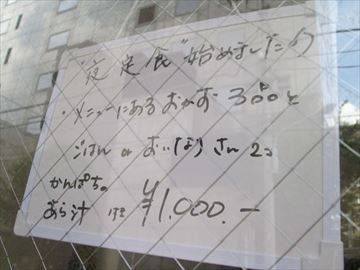 "夜定食"始めました!!
・メニューにあるおかず3品と
ごはん or おいなりさん2コ
かんぱちの
あら汁 付 ¥1,000.-